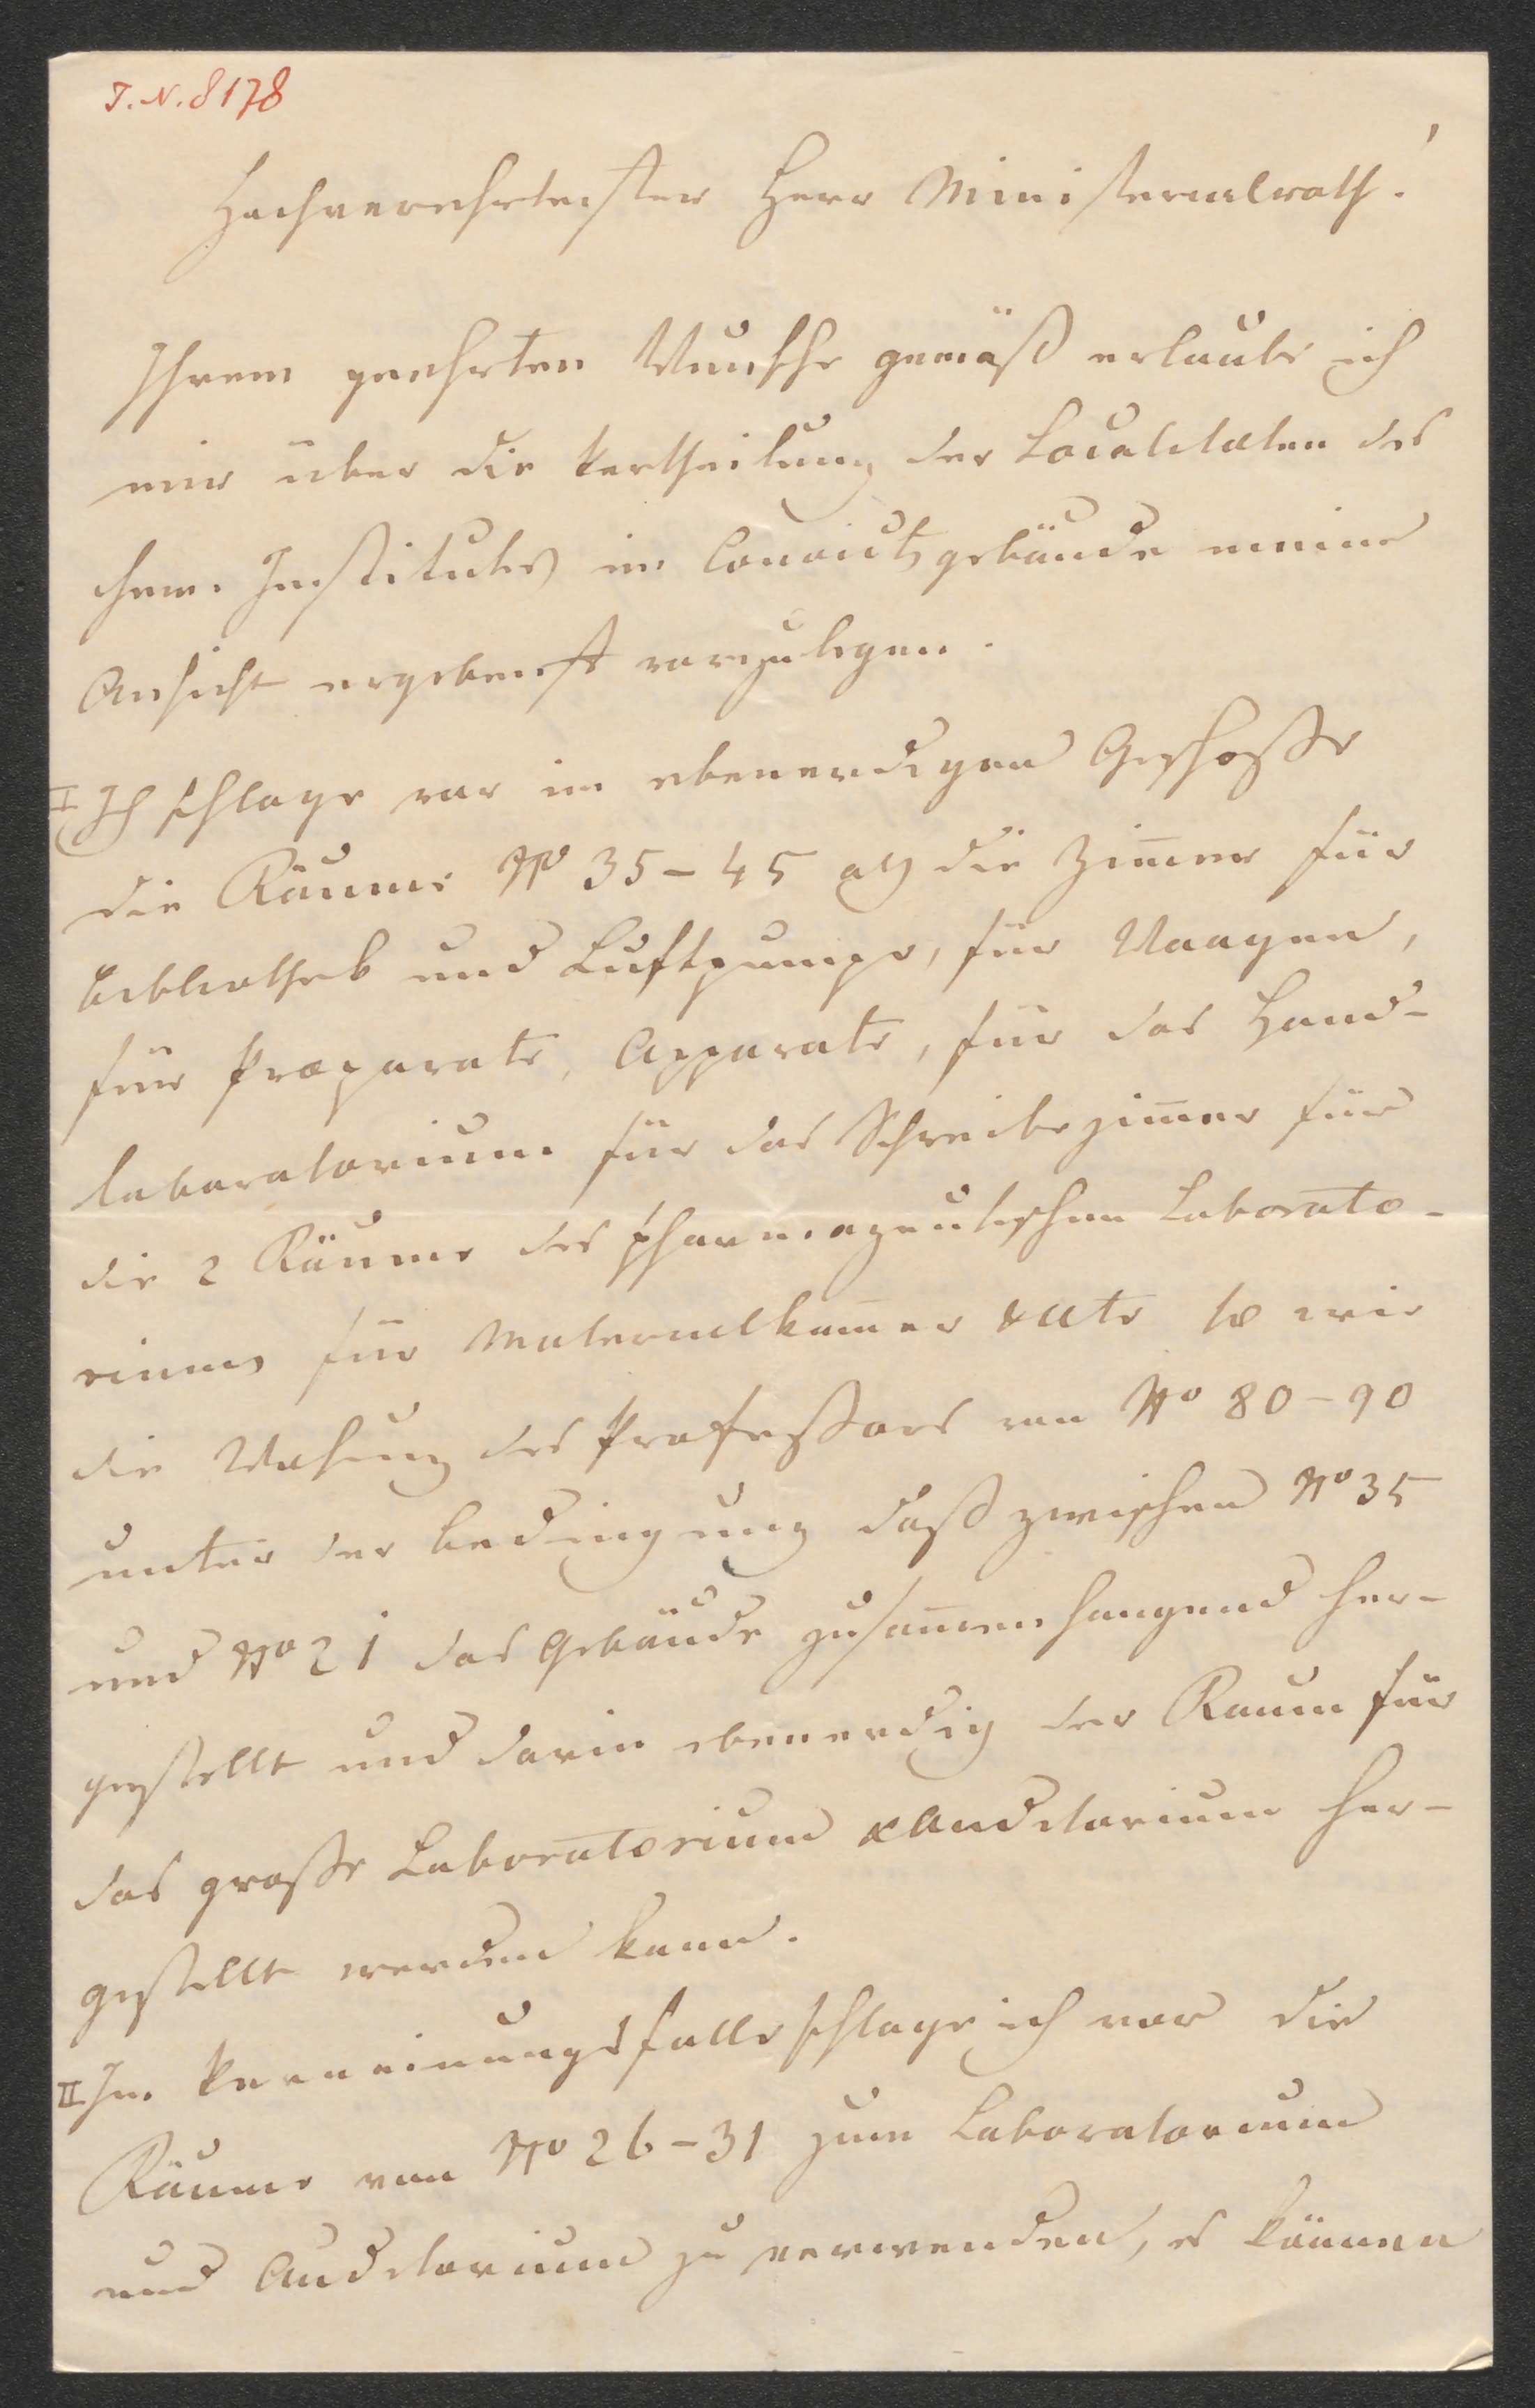 J. N. 8178
Hochverehrtester Herr Ministerialrath!
Ihrem geehrten Wunsche gemäß erlaube ich
mir über die Vertheilung der Localitäten des
chem. Institutes im Convictsgebäude meine
Ansicht ergebenst vorzulegen.
I Ich schlage vor im ebenerdigen Geschosse
die Räume No 35-45 als die Zim̄er für
Bibliothek und Luftpumpe, für Waagen,
für Präparate, Apparate, für das Hand-
laboratorium für das Schreibezim̄er für
die 2 Räume des pharmazeutischen Laborato-
riums für Materialkam̄er so wie
die Wohnung des Professors von No 80-90
unter der Bedingung daß zwischen No 35
und No 21 das Gebäude zusam̄enhangend her-
gestellt und darin ebenerdig der Raum für
das große Laboratorium & Auditorium her-
gestellt werden kann.
II Im Verneinungsfalle schlage ich vor die
Räume von No 26-31 zum Laboratorium
und Auditorium zu verwenden, es können